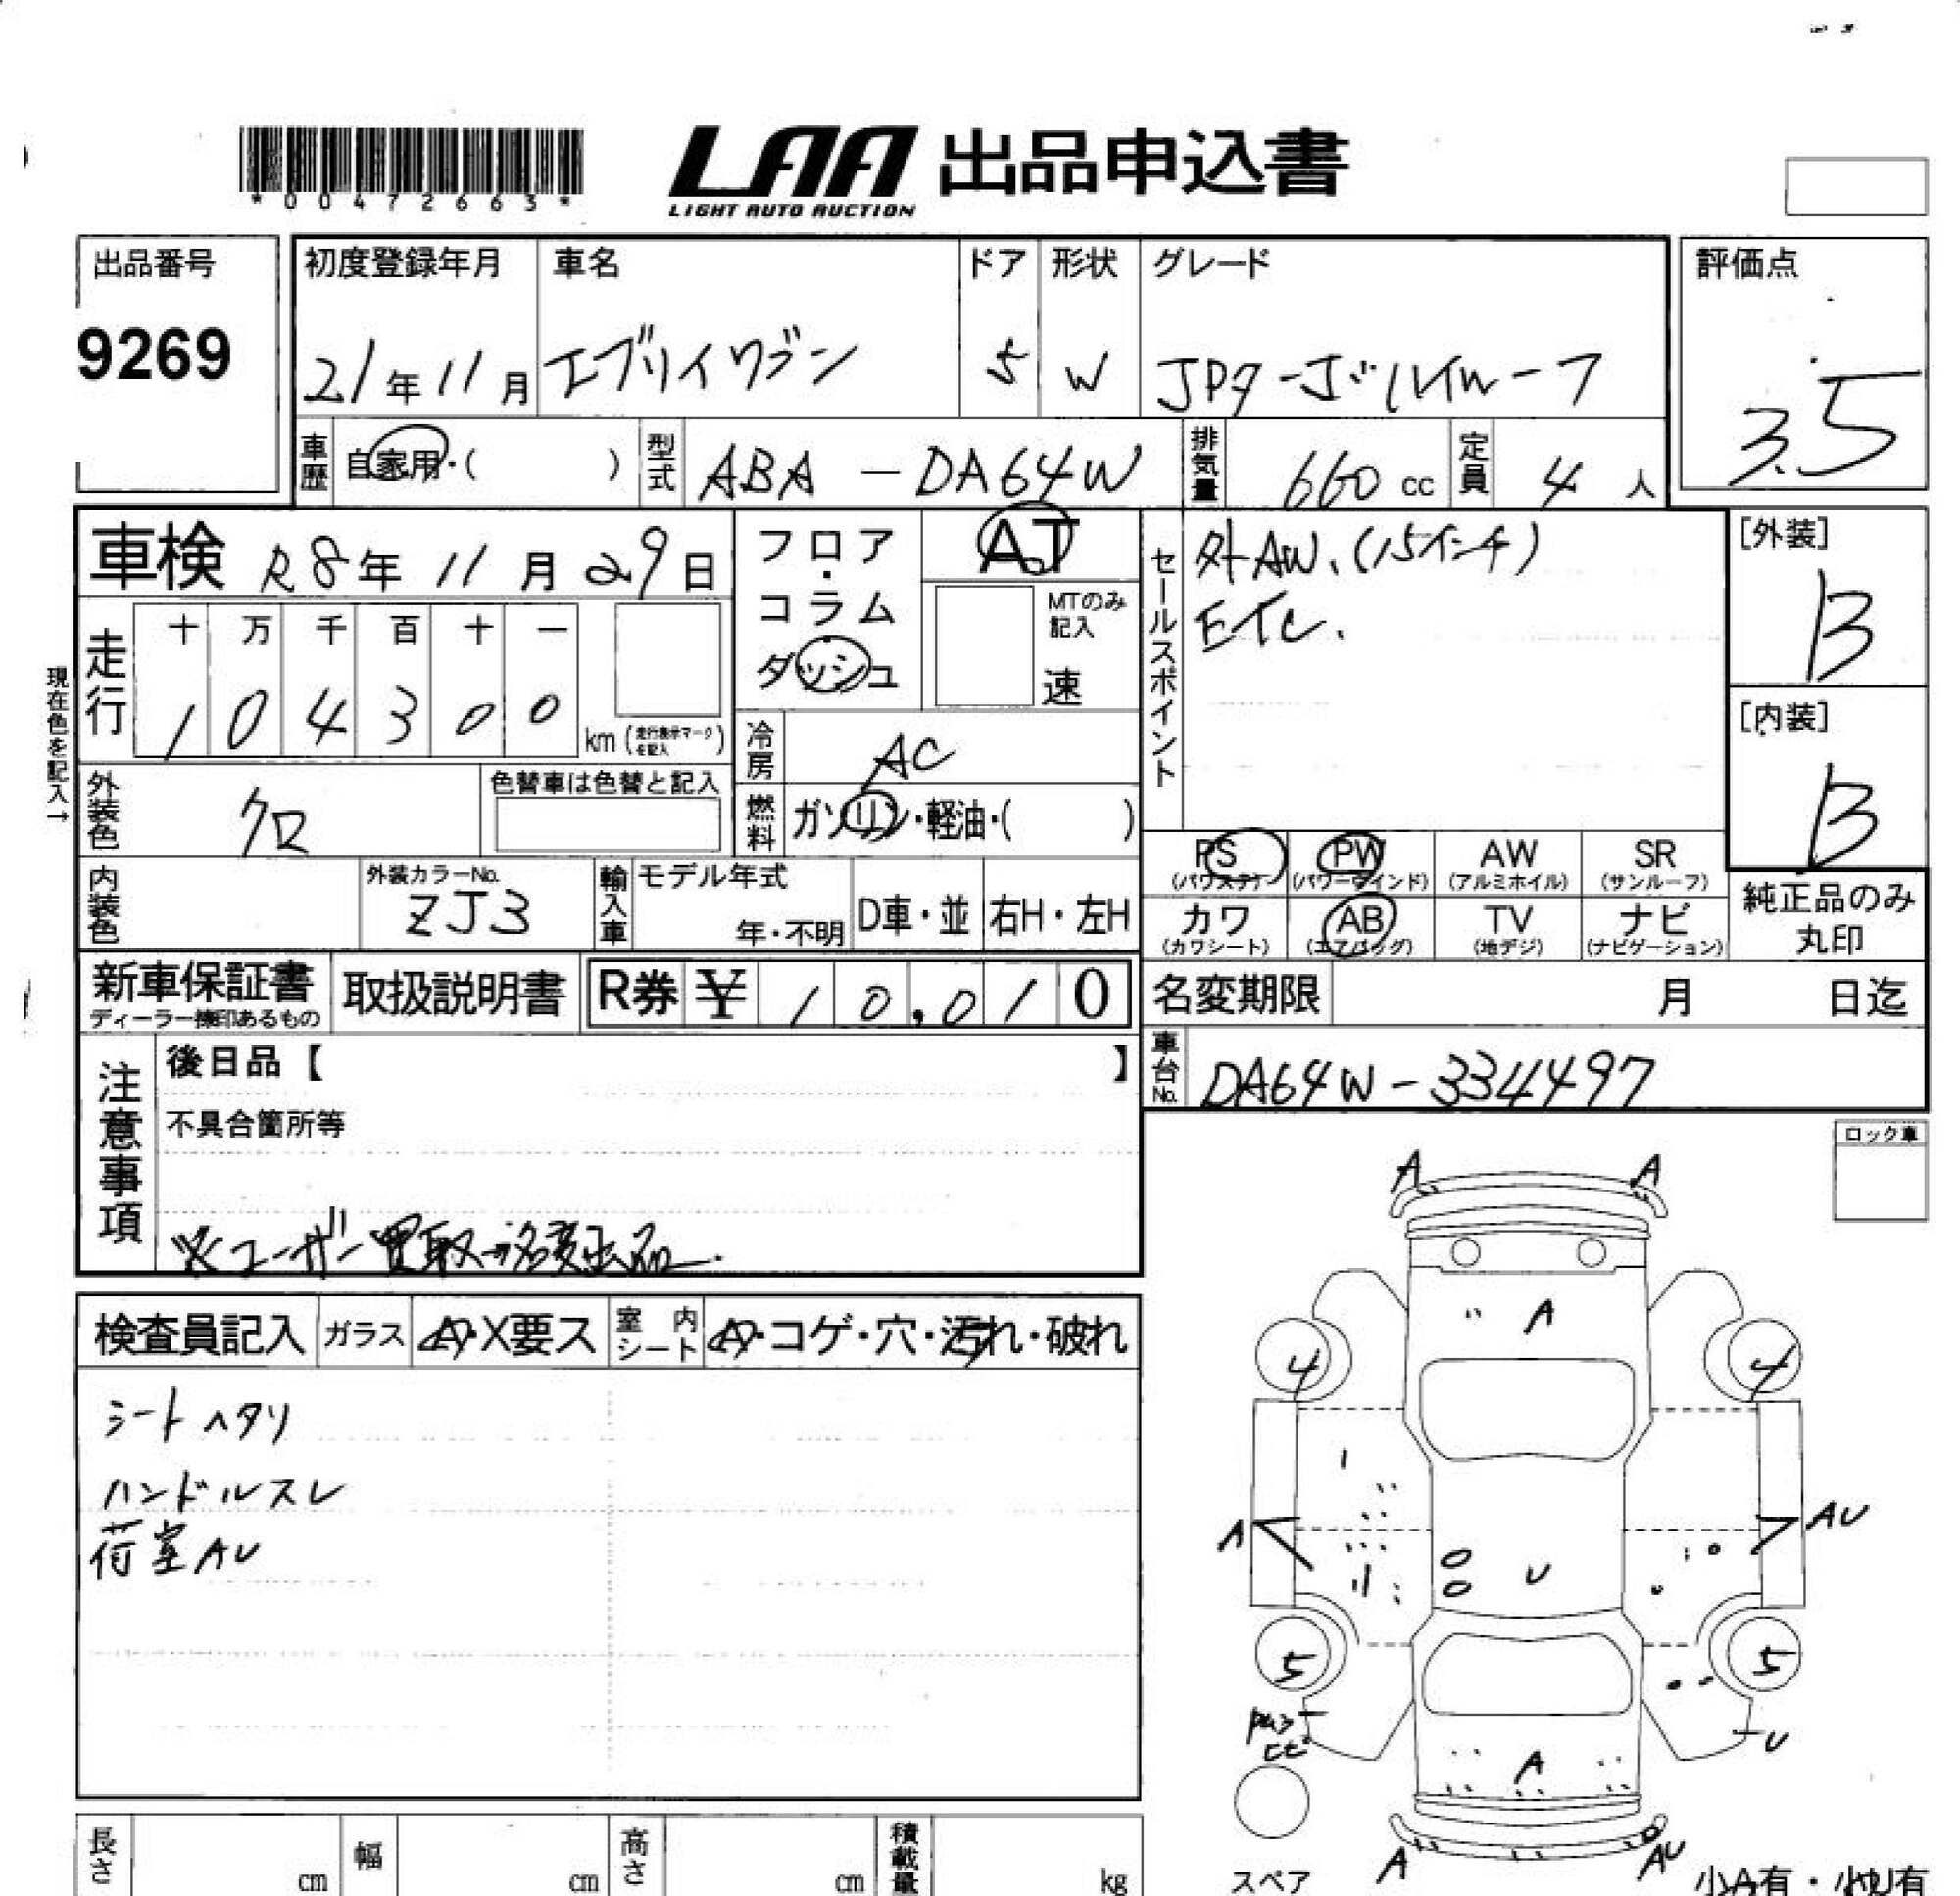 *00472663*
LAA 出品申込書
LIGHT AUTO AUCTION
出品番号
9269
初度登録年月
21年11月
車名
エブリイワゴン
ドア
5
形状
W
グレード
JPターボハイルーフ
評価点
3.5
車歴
自家用・( )
型式
ABA-DA64W
排気量
660cc
定員
4人
車検 R8年11月29日
フロア・コラム・ダッシュ
AT
MTのみ記入
速
セールスポイント
外AW.(15インチ)
ETC.
[外装]
B
[内装]
B
走行
十 万 千 百 十 一
1 0 4 3 0 0
km(走行表示マークを記入)
現在色を記入→
冷房
AC
外装色
クロ
色替車は色替と記入
燃料
ガソリン・軽油・( )
PS (パワステ)
PW (パワーウインド)
AW (アルミホイル)
SR (サンルーフ)
カワ (カワシート)
AB (エアバッグ)
TV (地デジ)
ナビ (ナビゲーション)
純正品のみ丸印
内装色
外装カラーNo.
ZJ3
輸入車
モデル年式
年・不明
D車・並
右H・左H
新車保証書
取扱説明書
R券 ¥ 10,010
名変期限 月 日迄
車台No.
DA64W-334497
注意事項
後日品【 】
不具合箇所等
※ユーザー買取→名変出品.
ロック車
検査員記入
ガラス
A・X要ス
室内シート
A・コゲ・穴・汚れ・破れ
シートヘタリ
ハンドルスレ
荷室AU
A A
A
4 4
A AU
U
5 5
U
A
A AU
スペア
小A有・小U有
長さ cm
幅 cm
高さ cm
積載量 kg